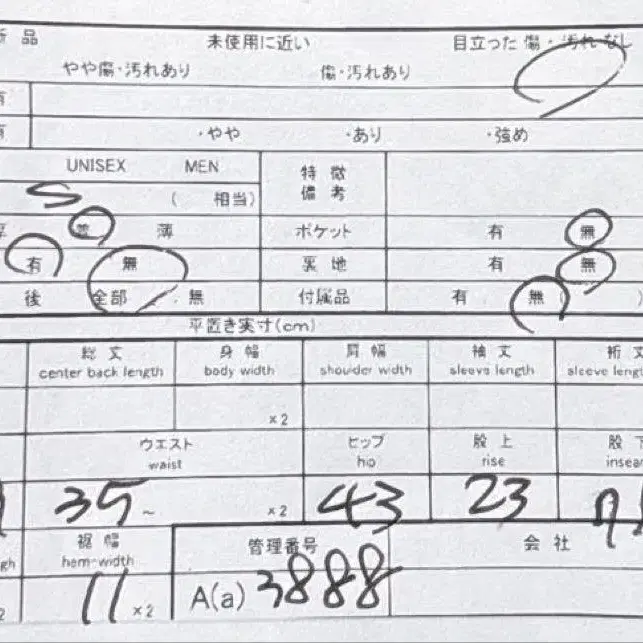 新品 未使用に近い 目立った傷・汚れなし
やや傷・汚れあり 傷・汚れあり
有
有 ・やや ・あり ・強め
UNISEX MEN 特徴
S ( 相当) 備考
厚 並 薄 ポケット 有 無
有 無 裏地 有 無
後 全部 無 付属品 有 無 )
平置き実寸(cm)
総丈 身幅 肩幅 袖丈 裄丈
center back length body width shoulder width sleeve length sleeve length
×2
ウエスト ヒップ 股上 股下
waist hip rise inseam
35~ ×2 43 23
裾幅 管理番号 会社
hem-width
11 ×2 A(a) 3888